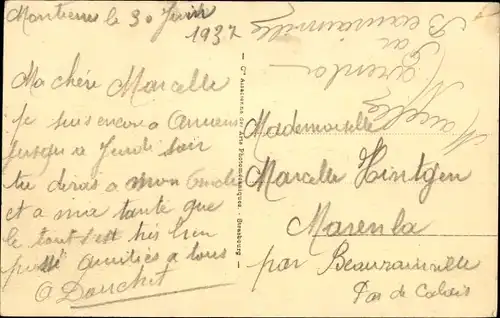 le 30
1937
Ma chère Marcelle
Je suis encore a Amiens
jusqu'a Jeudi soir
tu diras a mon Oncle
et a ma tante que
le tout s'est très bien
passé amitiés a tous
Cie Alsacienne des Arts Photomécaniques - Strasbourg
Mademoiselle
Marcelle Hintgen
Marenla
par Beaurainville
Pas de Calais
Marcelle
Marenla
par
Beaurainville